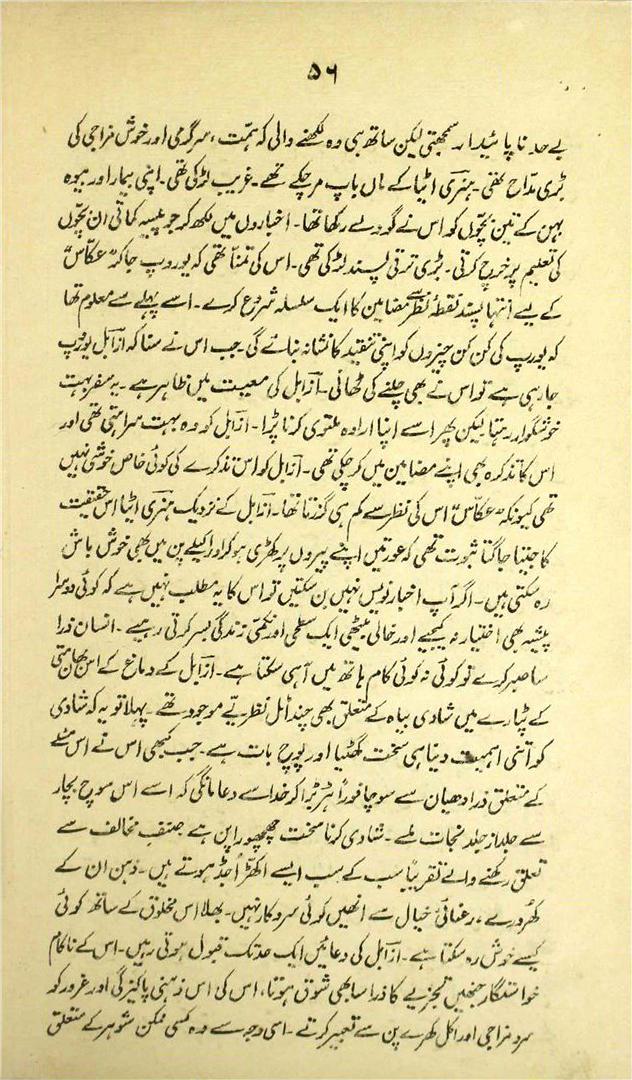 ۵۶
بے حد ناپائیدار سمجھتی لیکن ساتھ ہی وہ لکھنے والی کہ ہمّت، سرگرمی اور خوش مزاجی کی
بڑی مدّاح تھی۔ ہنری اٹیا کے ماں باپ مر چکے تھے۔ غریب لڑکی تھی۔ اپنی بیمار اور بیوہ
بہن کے تین بچّوں کو اس نے گود لے رکھا تھا۔ اخباروں میں لکھ کر جو پیسہ کماتی ان بچّوں
کی تعلیم پر خرچ کرتی۔ بڑی ترقی پسند لڑکی تھی۔ اس کی تمنّا تھی کہ یوروپ جا کر "عکّاس"
کے لیے انتہا پسند نقطۂ نظر سے مضامین کا ایک سلسلہ شروع کرے۔ اسے پہلے سے معلوم تھا
کہ یورپ کی کن کن چیزوں کو اپنی تنقید کا نشانہ بنائے گی۔ جب اس نے سنا کہ ازآبل یورپ
جا رہی ہے تو اس نے بھی چلنے کی ٹھانی۔ ازآبل کی معیت میں ظاہر ہے۔ یہ سفر بہت
خوشگوار رہتا لیکن پھر اسے اپنا ارادہ ملتوی کرنا پڑا۔ ازآبل کو وہ بہت سراہتی تھی اور
اس کا تذکرہ بھی اپنے مضامین میں کر چکی تھی۔ ازآبل کو اس تذکرے کی کوئی خاص خوشی نہیں
تھی کیونکہ "عکّاس" اس کی نظر سے کم ہی گذرتا تھا۔ ازآبل کے نزدیک ہنری اٹیا اس حقیقت
کا جیتا جاگتا ثبوت تھی کہ عورتیں اپنے پیروں پر کھڑی ہو کر اور اکیلے پن میں بھی خوش باش
رہ سکتی ہیں۔ اگر آپ اخبار نویس نہیں بن سکتیں تو اس کا یہ مطلب نہیں ہے کہ کوئی دوسرا
پیشہ بھی اختیار نہ کیجیے اور خالی بیٹھی ایک سطحی اور نکمّی زندگی بسر کرتی رہیے۔ انسان ذرا
سا صبر کرے تو کوئی نہ کوئی کام ہاتھ میں آ ہی سکتا ہے۔ ازآبل کے دماغ کے اس بھان متی
کے پٹارے میں شادی بیاہ کے متعلق بھی چند اٹل نظریے موجود تھے۔ پہلا تو یہ کہ شادی
کو اتنی اہمیت دینا ہی سخت گھٹیا اور پوچ بات ہے۔ جب کبھی اس نے اس مسئلے
کے متعلق ذرا دھیان سے سوچا فوراً ہڑبڑا کر خدا سے دعا مانگی کہ اسے اس سوچ بچار
سے جلد از جلد نجات ملے۔ شادی کرنا سخت چھچھورا پن ہے صنفِ مخالف سے
تعلق رکھنے والے تقریباً سب کے سب ایسے اکھڑ اجڈ ہوتے ہیں۔ ذہن ان کے
کھُردرے، رعنائیِ خیال سے انھیں کوئی سروکار نہیں۔ بھلا اس مخلوق کے ساتھ کوئی
کیسے خوش رہ سکتا ہے۔ ازآبل کی دعائیں ایک حد تک قبول ہوتی رہیں۔ اس کے ناکام
خواستگار جنھیں تجزیے کا ذرا سا بھی شوق ہوتا، اس کی اس ذہنی پاکیزگی اور غرور کو
سرد مزاجی اور اکل کھرے پن سے تعبیر کرتے۔ اسی وجہ سے وہ کسی ممکن شوہر کے متعلق